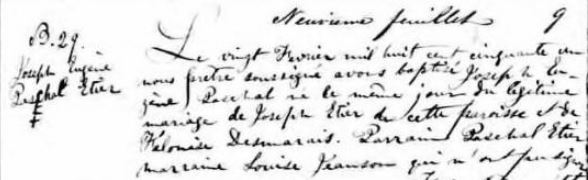 Neuvieme feuillet 9
B. 29.
Joseph Eugène
Paschal Etier
Le vingt Fevrier mil huit cent cinquante un
nous prêtre soussigné avons baptisé Joseph Eu-
gène Paschal né le même jour du légitime
mariage de Joseph Etier de cette paroisse et de
Félonise Desmarais. Parrain Paschal Etier
marraine Louise Jeanson qui n'ont pu signer